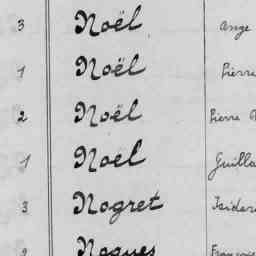 3 Noël Ange
1 Noël Pierre
2 Noël Pierre
1 Noël
3 Nogret Isidore
2 Nogues